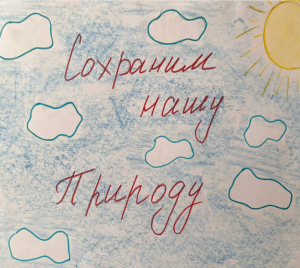 Сохраним
нашу
Природу